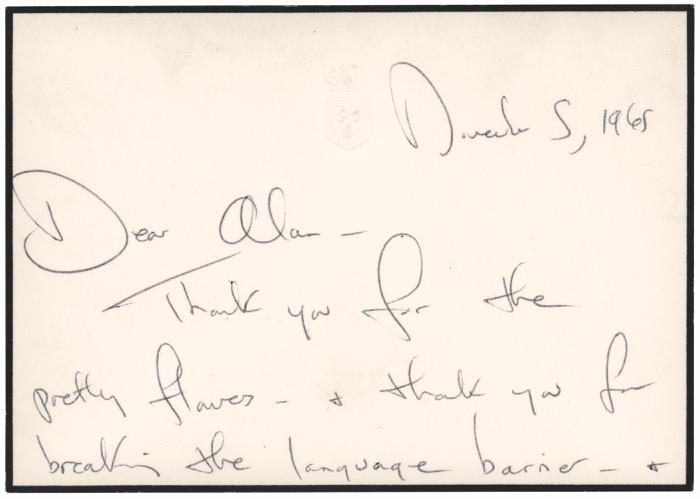 December 5, 1965
Dear Alan –
Thank you for the
pretty flowers – + thank you for
breaking the language barrier – +